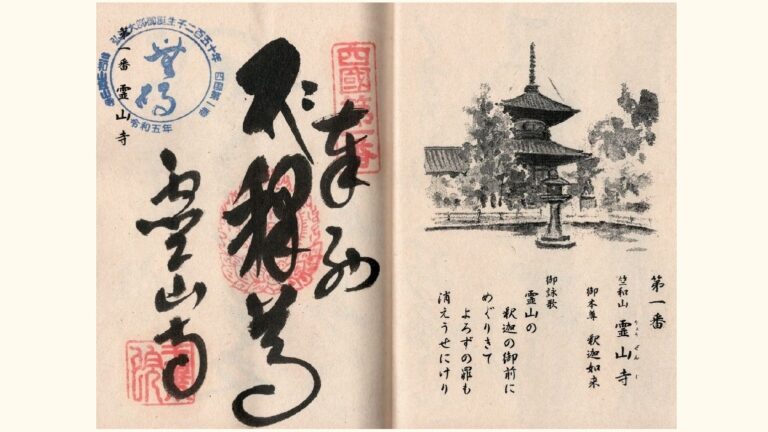 第一番
竺和山 霊山寺
りょうぜんじ
御本尊 釈迦如来
御詠歌
霊山の
釈迦の御前に
めぐりきて
よろずの罪も
消えうせにけり
四國第一番
奉納
釋尊
霊山寺
第一番 霊山寺
弘法大師御誕生千二百五十年
令和五年